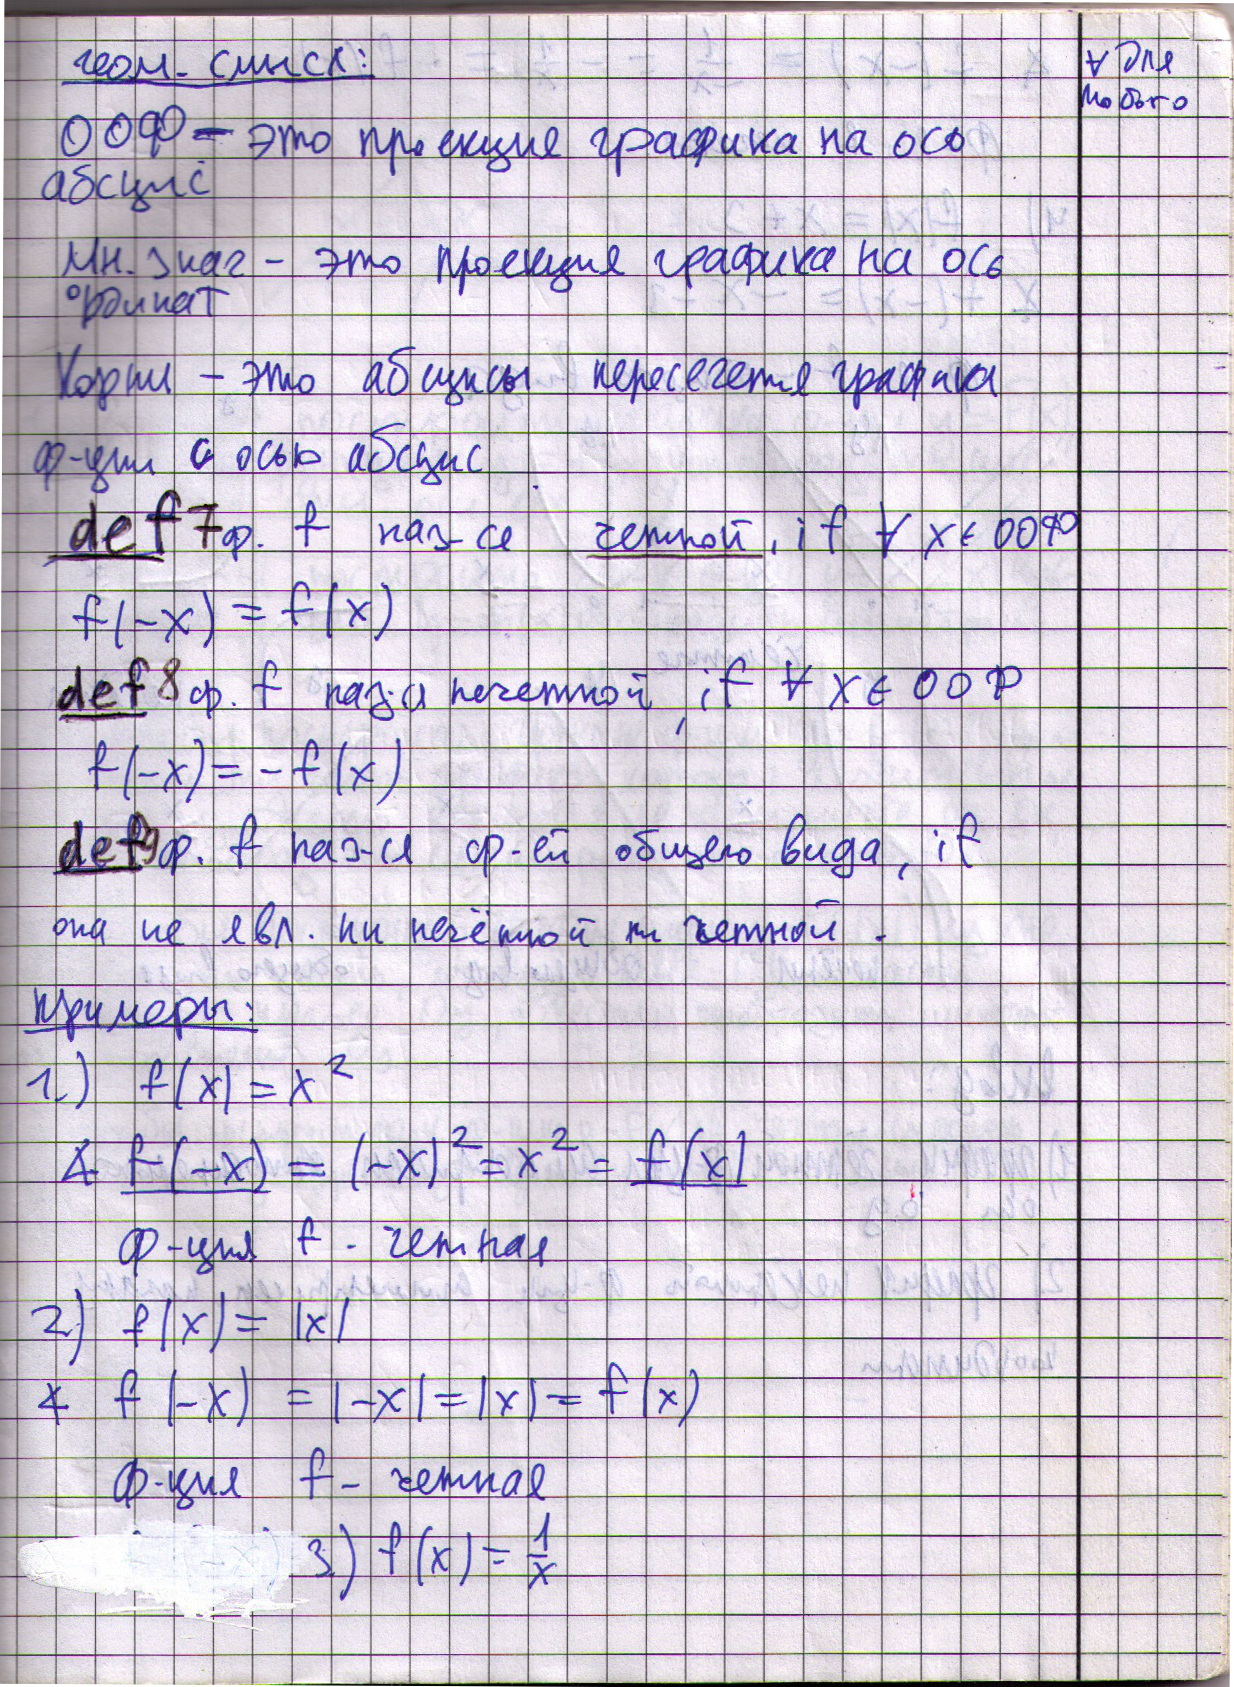 геом. смысл:
ООФ - это проекция графика на ось
абсцис
Мн. знач - это проекция графика на ось
ординат
Корни - это абсцисы пересечения графика
ф-ции с осью абсцис
def 7 ф. f наз-ся четной, if ∀ x ∈ ООФ
f(-x) = f(x)
def 8 ф. f наз-ся нечетной, if ∀ x ∈ ООФ
f(-x) = -f(x)
def 9 ф. f наз-ся ф-ей общего вида, if
она не явл. ни нечётной ни четной.
Примеры:
1.) f(x) = x²
∢ f(-x) = (-x)² = x² = f(x)
ф-ция f - четная
2) f(x) = |x|
∢ f(-x) = |-x| = |x| = f(x)
ф-ция f - четная
3.) f(x) = 1/x
∀ для
любого